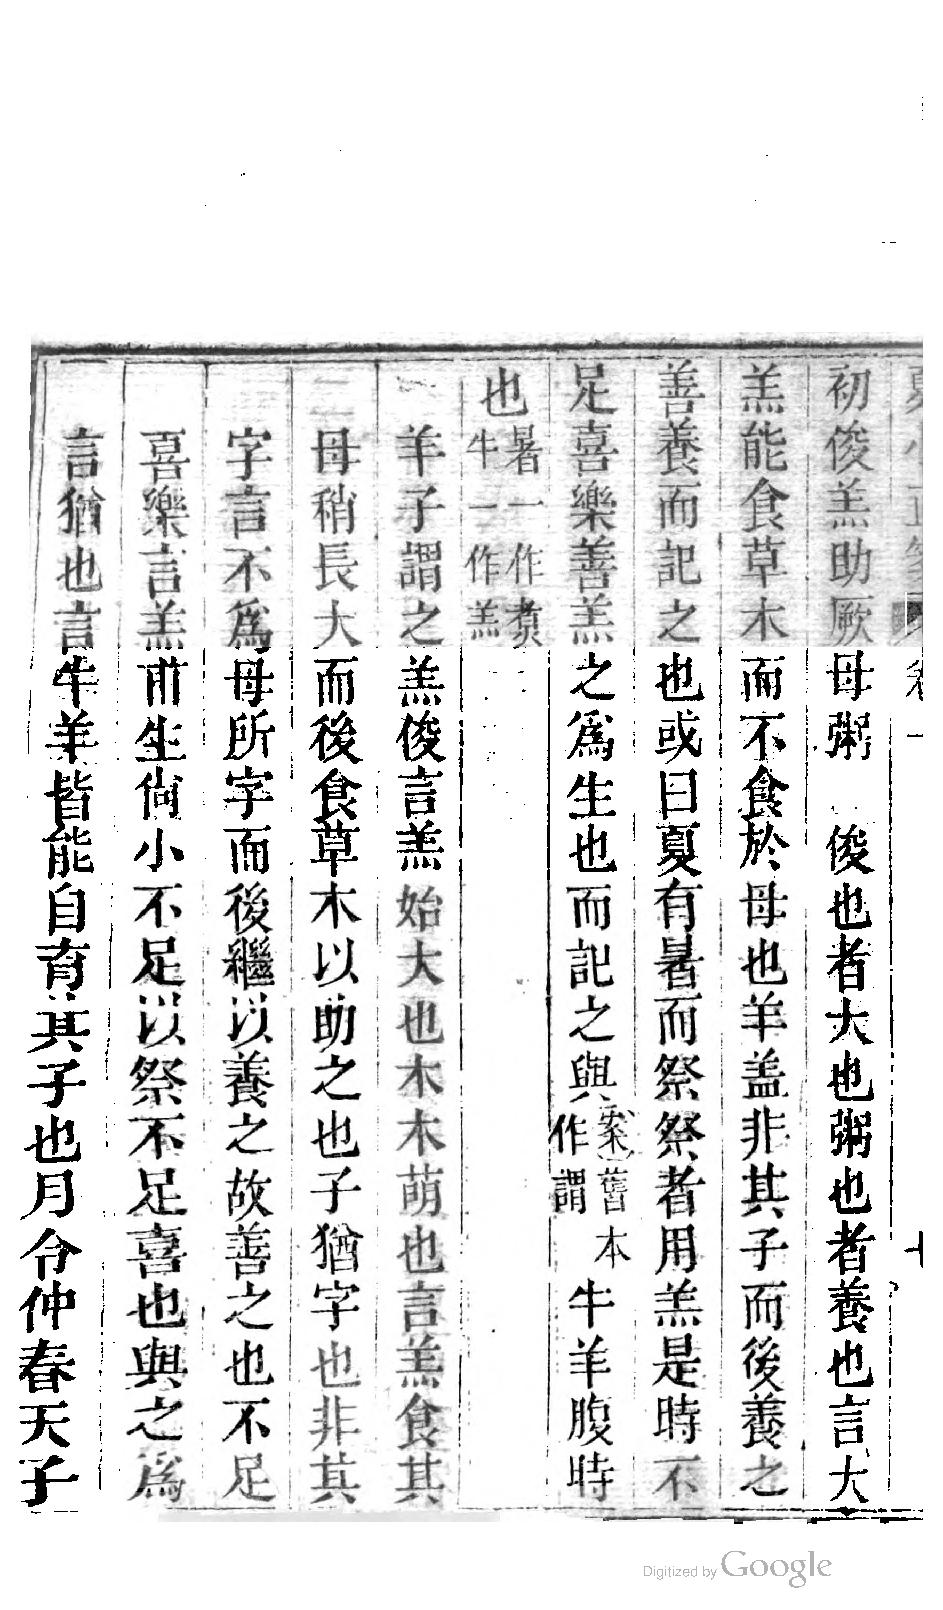 夏小正 卷一 七
初俊羔助厥母粥 俊也者大也粥也者養也言大
羔能食草木而不食於母也羊盖非其子而後養之
善養而記之也或曰夏有暑而祭祭者用羔是時不
足喜樂善羔之爲生也而記之與案舊本作謂牛羊腹時
也暑一作煑牛一作羔
羊子謂之羔俊言羔始大也木木萌也言羔食其
母稍長大而後食草木以助之也子猶字也非其
字言不爲母所字而後繼以養之故善之也不足
喜樂言羔甫生尙小不足以祭不足喜也與之爲
言猶也言牛羊皆能自育其子也月令仲春天子
Digitized by Google